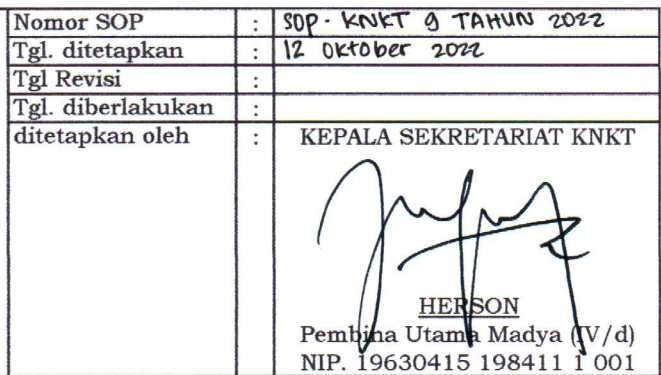 Nomor SOP : SOP - KNKT 9 TAHUN 2022
Tgl. ditetapkan : 12 Oktober 2022
Tgl Revisi :
Tgl. diberlakukan :
ditetapkan oleh : KEPALA SEKRETARIAT KNKT
HERSON
Pembina Utama Madya (IV/d)
NIP. 19630415 198411 1 001